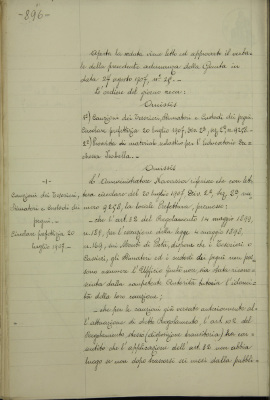 -896-
Aperta la seduta viene letto ed approvato il verba-
le della precedente adunanza della Giunta in
data 27 agosto 1907, n° 28.
L'ordine del giorno reca:
Omissis
1°) Cauzioni dei Tesorieri, Stimatori e Custodi dei pegni.
Circolare prefettizia 20 luglio 1907, Div. 2ª, 
2°) materiale scientifico per il laboratorio
Omissis
-1-
Cauzioni dei Tesorieri,
Stimatori e custodi dei
pegni.
Circolare prefettizia 20
luglio 1907.
L'Amministratore riferisce che con let-
tera circolare del 20 luglio 1907 Div. 2ª,
9278, la locale Prefettura, premesso;
- che l'art. 12 del Regolamento 14 maggio 1899,
n. 185, per l'esecuzione della legge 4 maggio 1898,
n. 169, sui Monti di Pietà, dispone che i Tesorieri e
Custodi, gli stimatori ed i custodi dei pegni non pos-
sono assumere l'Ufficio finché non sia stata ricono-
sciuta dalla competente Autorità tutoria l'idonei-
tà della loro cauzione;
- che per le cauzioni già versate anteriormente al-
l'attuazione di detto Regolamento, l'art.
Regolamento stesso (disposizione transitoria) ha con-
sentito che l'applicazione dell'art. 12 non abbia
luogo se non dopo trascorsi sei mesi dalla pubbli-